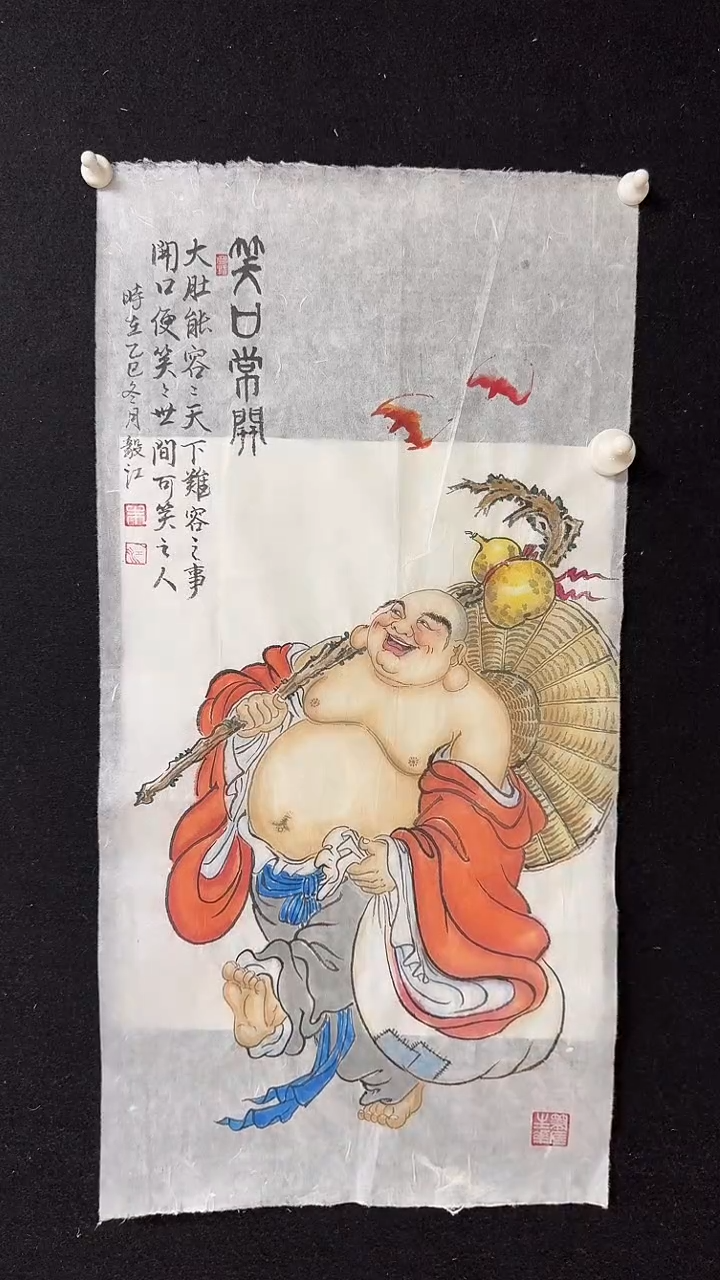 笑口常開
大肚能容〻天下難容之事
開口便笑〻世間可笑之人
時在乙巳冬月毅江